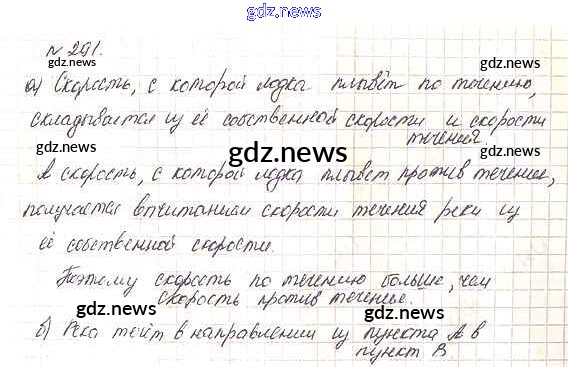 gdz.news
№ 291.
gdz.news gdz.news
а) Скорость, с которой лодка плывёт по течению,
складывается из её собственной скорости и скорости
течения.
gdz.news gdz.news gdz.news
А скорость, с которой лодка плывёт против течение,
получается вычитанием скорости течения реки из
gdz.news gdz.news
её собственной скорости.
Поэтому скорость по течению больше, чем
скорость против течение.
gdz.news gdz.news
б) Река течёт в направлении из пункта А в
пункт В.
gdz.news